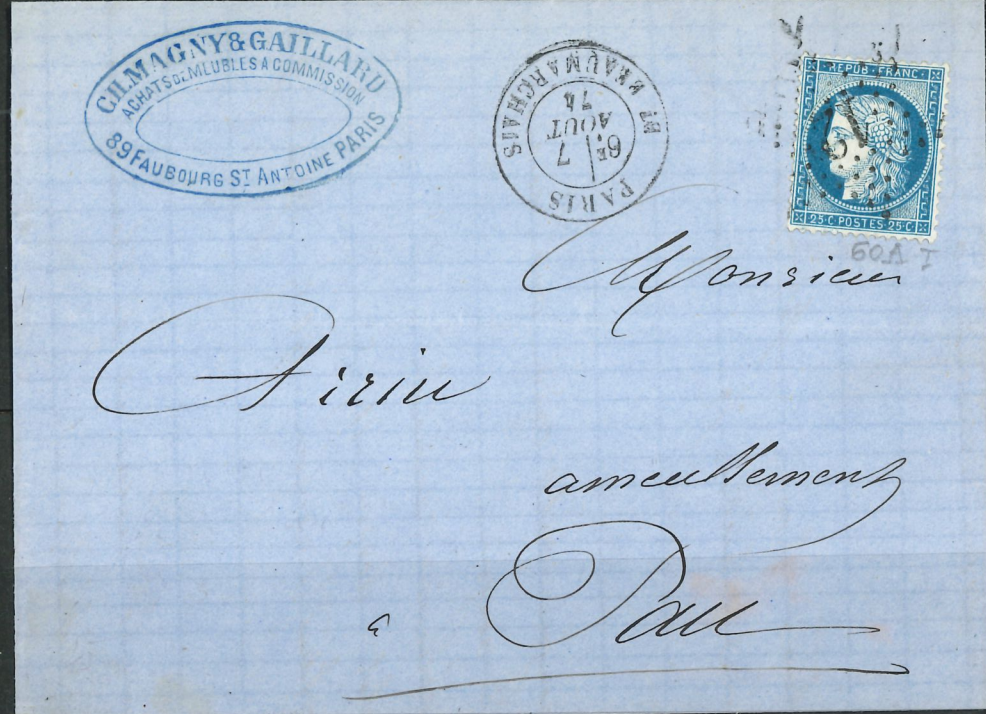 GILMAGNY & GAILLARD
ACHATS DE MEUBLES A COMMISSION
89 FAUBOURG ST ANTOINE PARIS
PARIS
6E
7
AOUT
74
BT BEAUMARCHAIS
REPUB. FRANC.
25·C POSTES 25·C
60A I
Monsieur
ameublement
à Pau